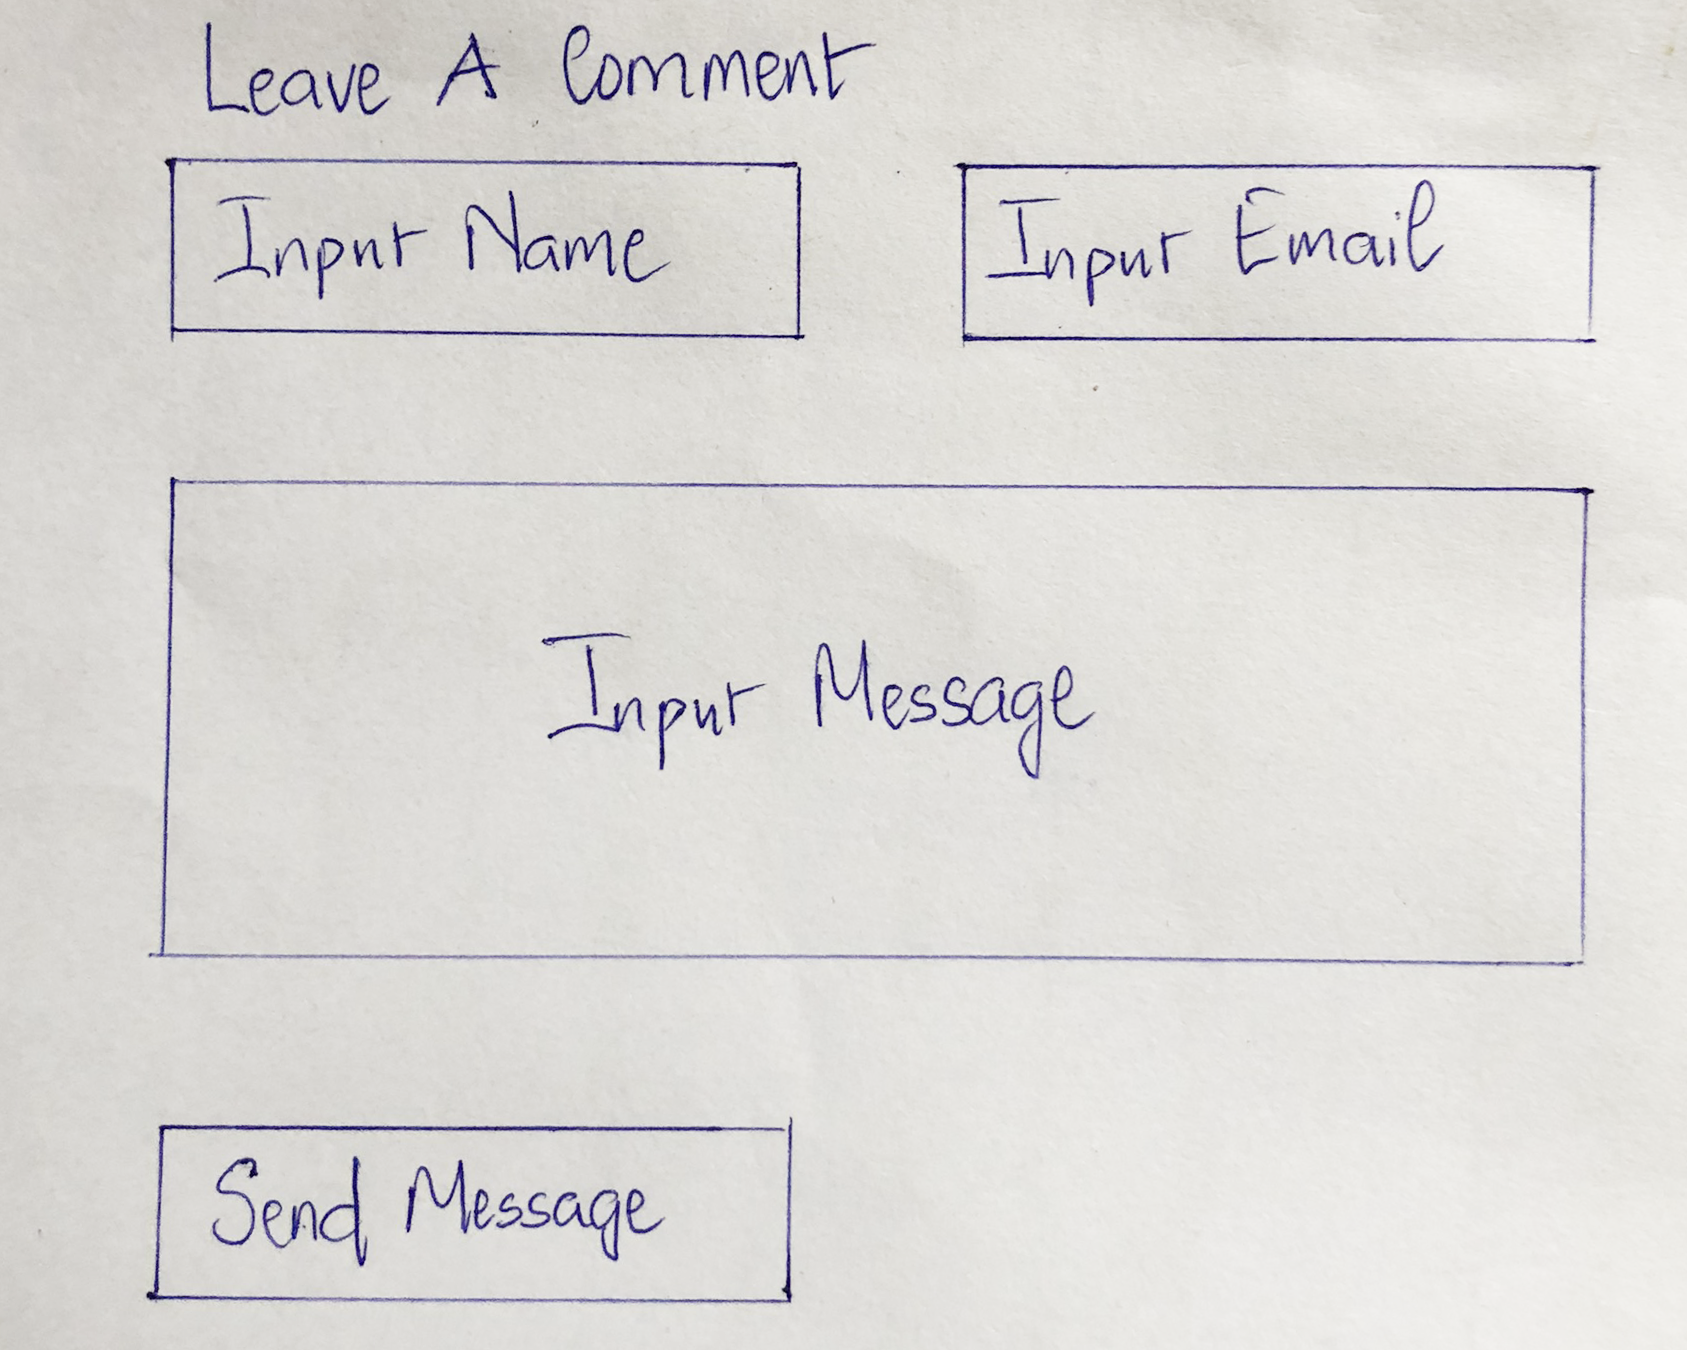 Leave A Comment
Input Name
Input Email
Input Message
Send Message